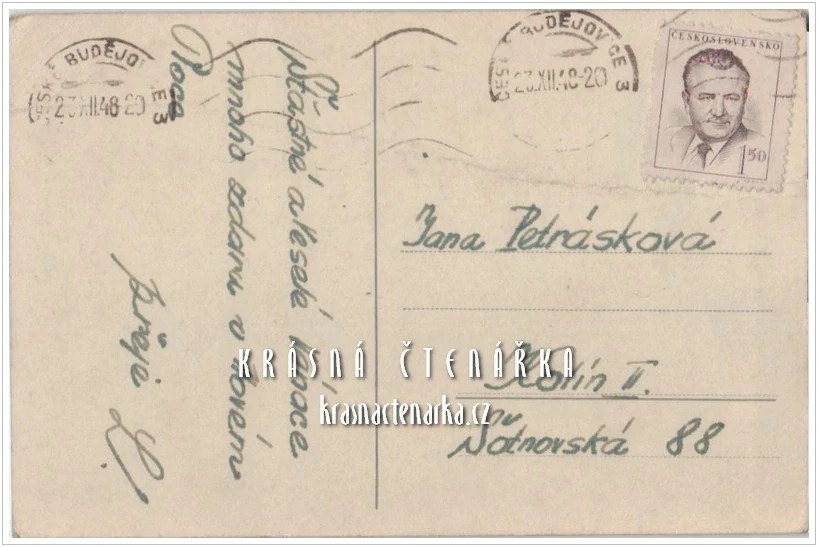 ČESKÉ BUDĚJOVICE 3
23.XII.48-20
ČESKÉ BUDĚJOVICE 3
23.XII.48-20
ČESKOSLOVENSKO
1 50
Šťastné a veselé Vánoce
mnoho zdaru v Novém
Roce
přeje
Jana Petrásková
Kolín II.
88
KRÁSNÁ ČTENÁŘKA
krasnactenarka.cz